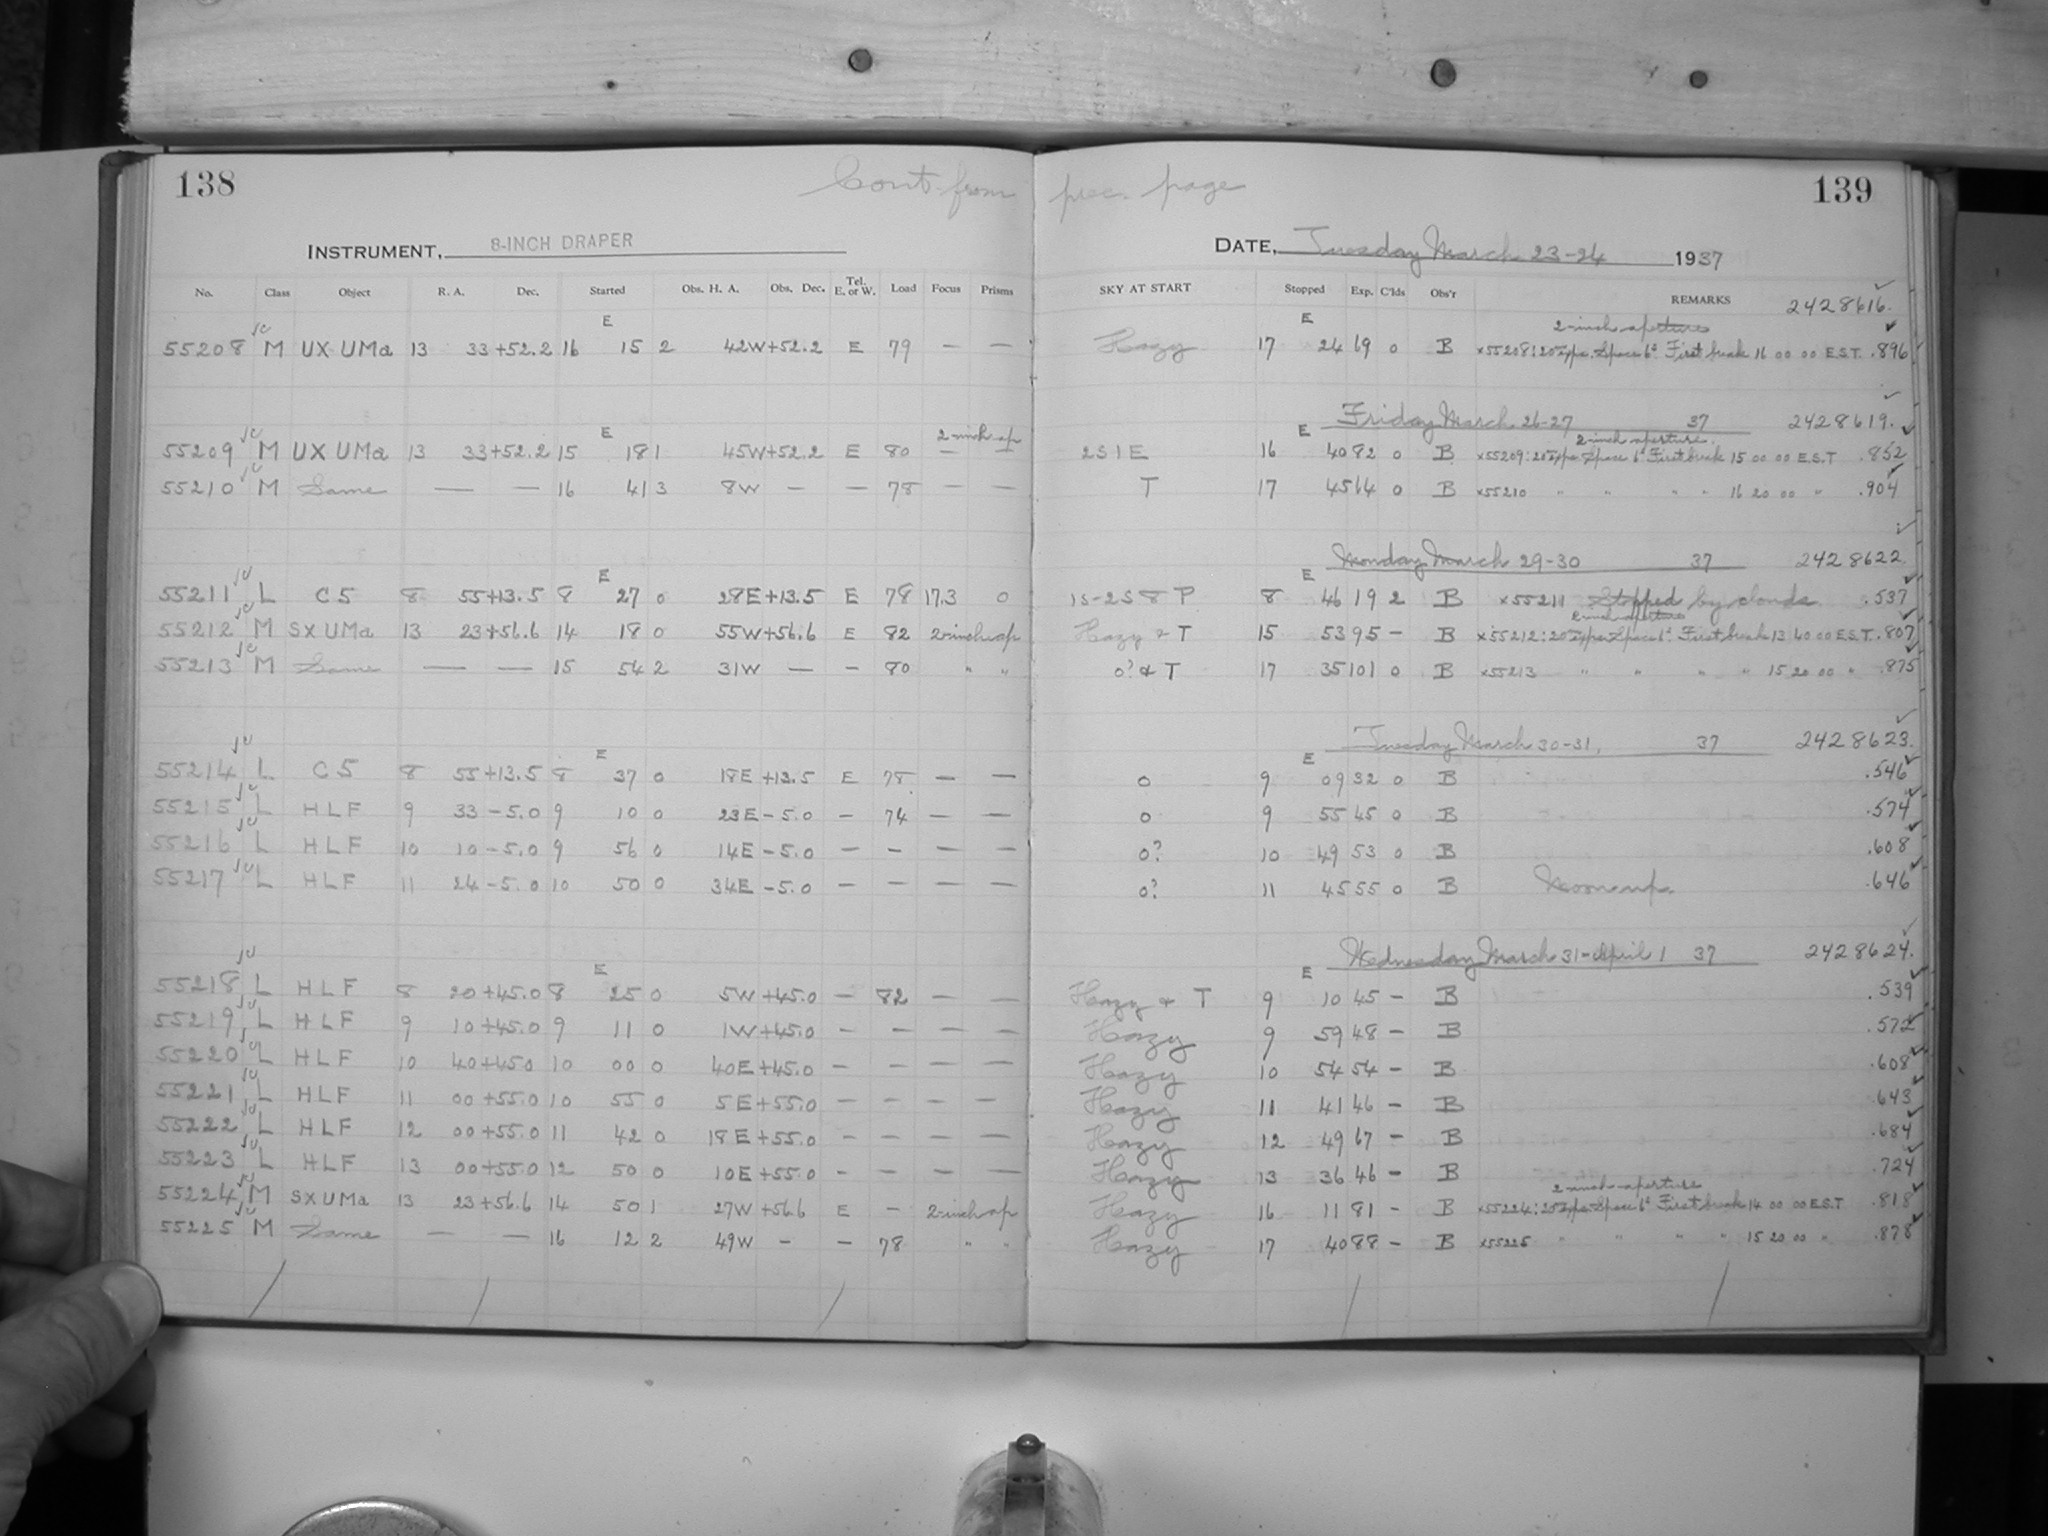 138 Cont. from prec. page 139
INSTRUMENT, 8-INCH DRAPER DATE, Tuesday March 23-24 1937
No. Class Object R. A. Dec. Started Obs. H. A. Obs. Dec. Tel. E. or W. Load Focus Prisms SKY AT START Stopped Exp. C'lds Obs'r REMARKS 2428616.
E E 2-inch aperture
55208 M UX UMa 13 33 +52.2 16 15 2 42W +52.2 E 79 — — Hazy 17 24 69 0 B x55208: 20 Exps. Space 6ᵈ First break 16 00 00 E.S.T. .896
Friday March 26-27 37 2428619.
E 2-inch ap E 2-inch aperture.
55209 M UX UMa 13 33 +52.2 15 18 1 45W +52.2 E 80 — — 2S1E 16 40 82 0 B x55209: 20 Exps. Space 6ᵈ First break 15 00 00 E.S.T .852
55210 M Same — — 16 41 3 8W — — 78 — — T 17 45 64 0 B x55210 " " " " 16 20 00 " .904
Monday March 29-30 37 2428622.
E E
55211 L C5 8 55 +13.5 8 27 0 28E +13.5 E 78 17.3 0 1S-2S8P 8 46 19 2 B x55211 Stopped by clouds .537
2-inch aperture
55212 M SX UMa 13 23 +56.6 14 18 0 55W +56.6 E 82 2-inch ap Hazy & T 15 53 95 — B x55212: 20 Exps. Space 6ᵈ. First break 13 40 00 E.S.T. .807
55213 M Same — — 15 54 2 31W — — 80 " " 0? & T 17 35 101 0 B x55213 " " " " 15 20 00 " .875
Tuesday March 30-31, 37 2428623.
E E
55214 L C5 8 55 +13.5 8 37 0 18E +13.5 E 78 — — 0 9 09 32 0 B .546
55215 L HLF 9 33 -5.0 9 10 0 23E -5.0 — 74 — — 0 9 55 45 0 B .574
55216 L HLF 10 10 -5.0 9 56 0 14E -5.0 — — — — 0? 10 49 53 0 B .608
55217 L HLF 11 24 -5.0 10 50 0 34E -5.0 — — — — 0? 11 45 55 0 B Moon up. .646
Wednesday March 31-April 1 37 2428624.
E E
55218 L HLF 8 20 +45.0 8 25 0 5W +45.0 — 82 — — Hazy & T 9 10 45 — B .539
55219 L HLF 9 10 +45.0 9 11 0 1W +45.0 — — — — Hazy 9 59 48 — B .572
55220 L HLF 10 40 +45.0 10 00 0 40E +45.0 — — — — Hazy 10 54 54 — B .608
55221 L HLF 11 00 +55.0 10 55 0 5E +55.0 — — — — Hazy 11 41 46 — B .643
55222 L HLF 12 00 +55.0 11 42 0 18E +55.0 — — — — Hazy 12 49 67 — B .684
55223 L HLF 13 00 +55.0 12 50 0 10E +55.0 — — — — Hazy 13 36 46 — B .724
2-inch aperture
55224 M SX UMa 13 23 +56.6 14 50 1 27W +56.6 E — 2-inch ap Hazy 16 11 81 — B x55224: 20 Exps. Space 6ᵈ First break 14 00 00 E.S.T .818
55225 M Same — — 16 12 2 49W — — 78 " " Hazy 17 40 88 — B x55225 " " " " 15 20 00 " .878